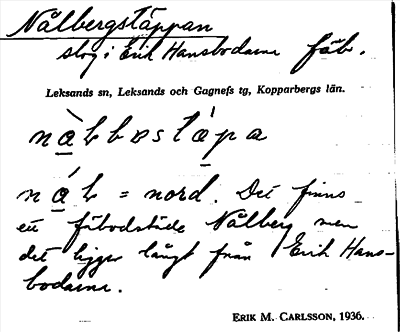 Nålbergstäppan
slog i Erik Hansbodarne fäb.
Leksands sn, Leksands och Gagnefs tg, Kopparbergs län.
nàlbɐstápa
nál = nord. Det finns
ett fäbodställe Nålberg men
det ligger långt från Erik Hans-
bodarne.
ERIK M. CARLSSON, 1936.